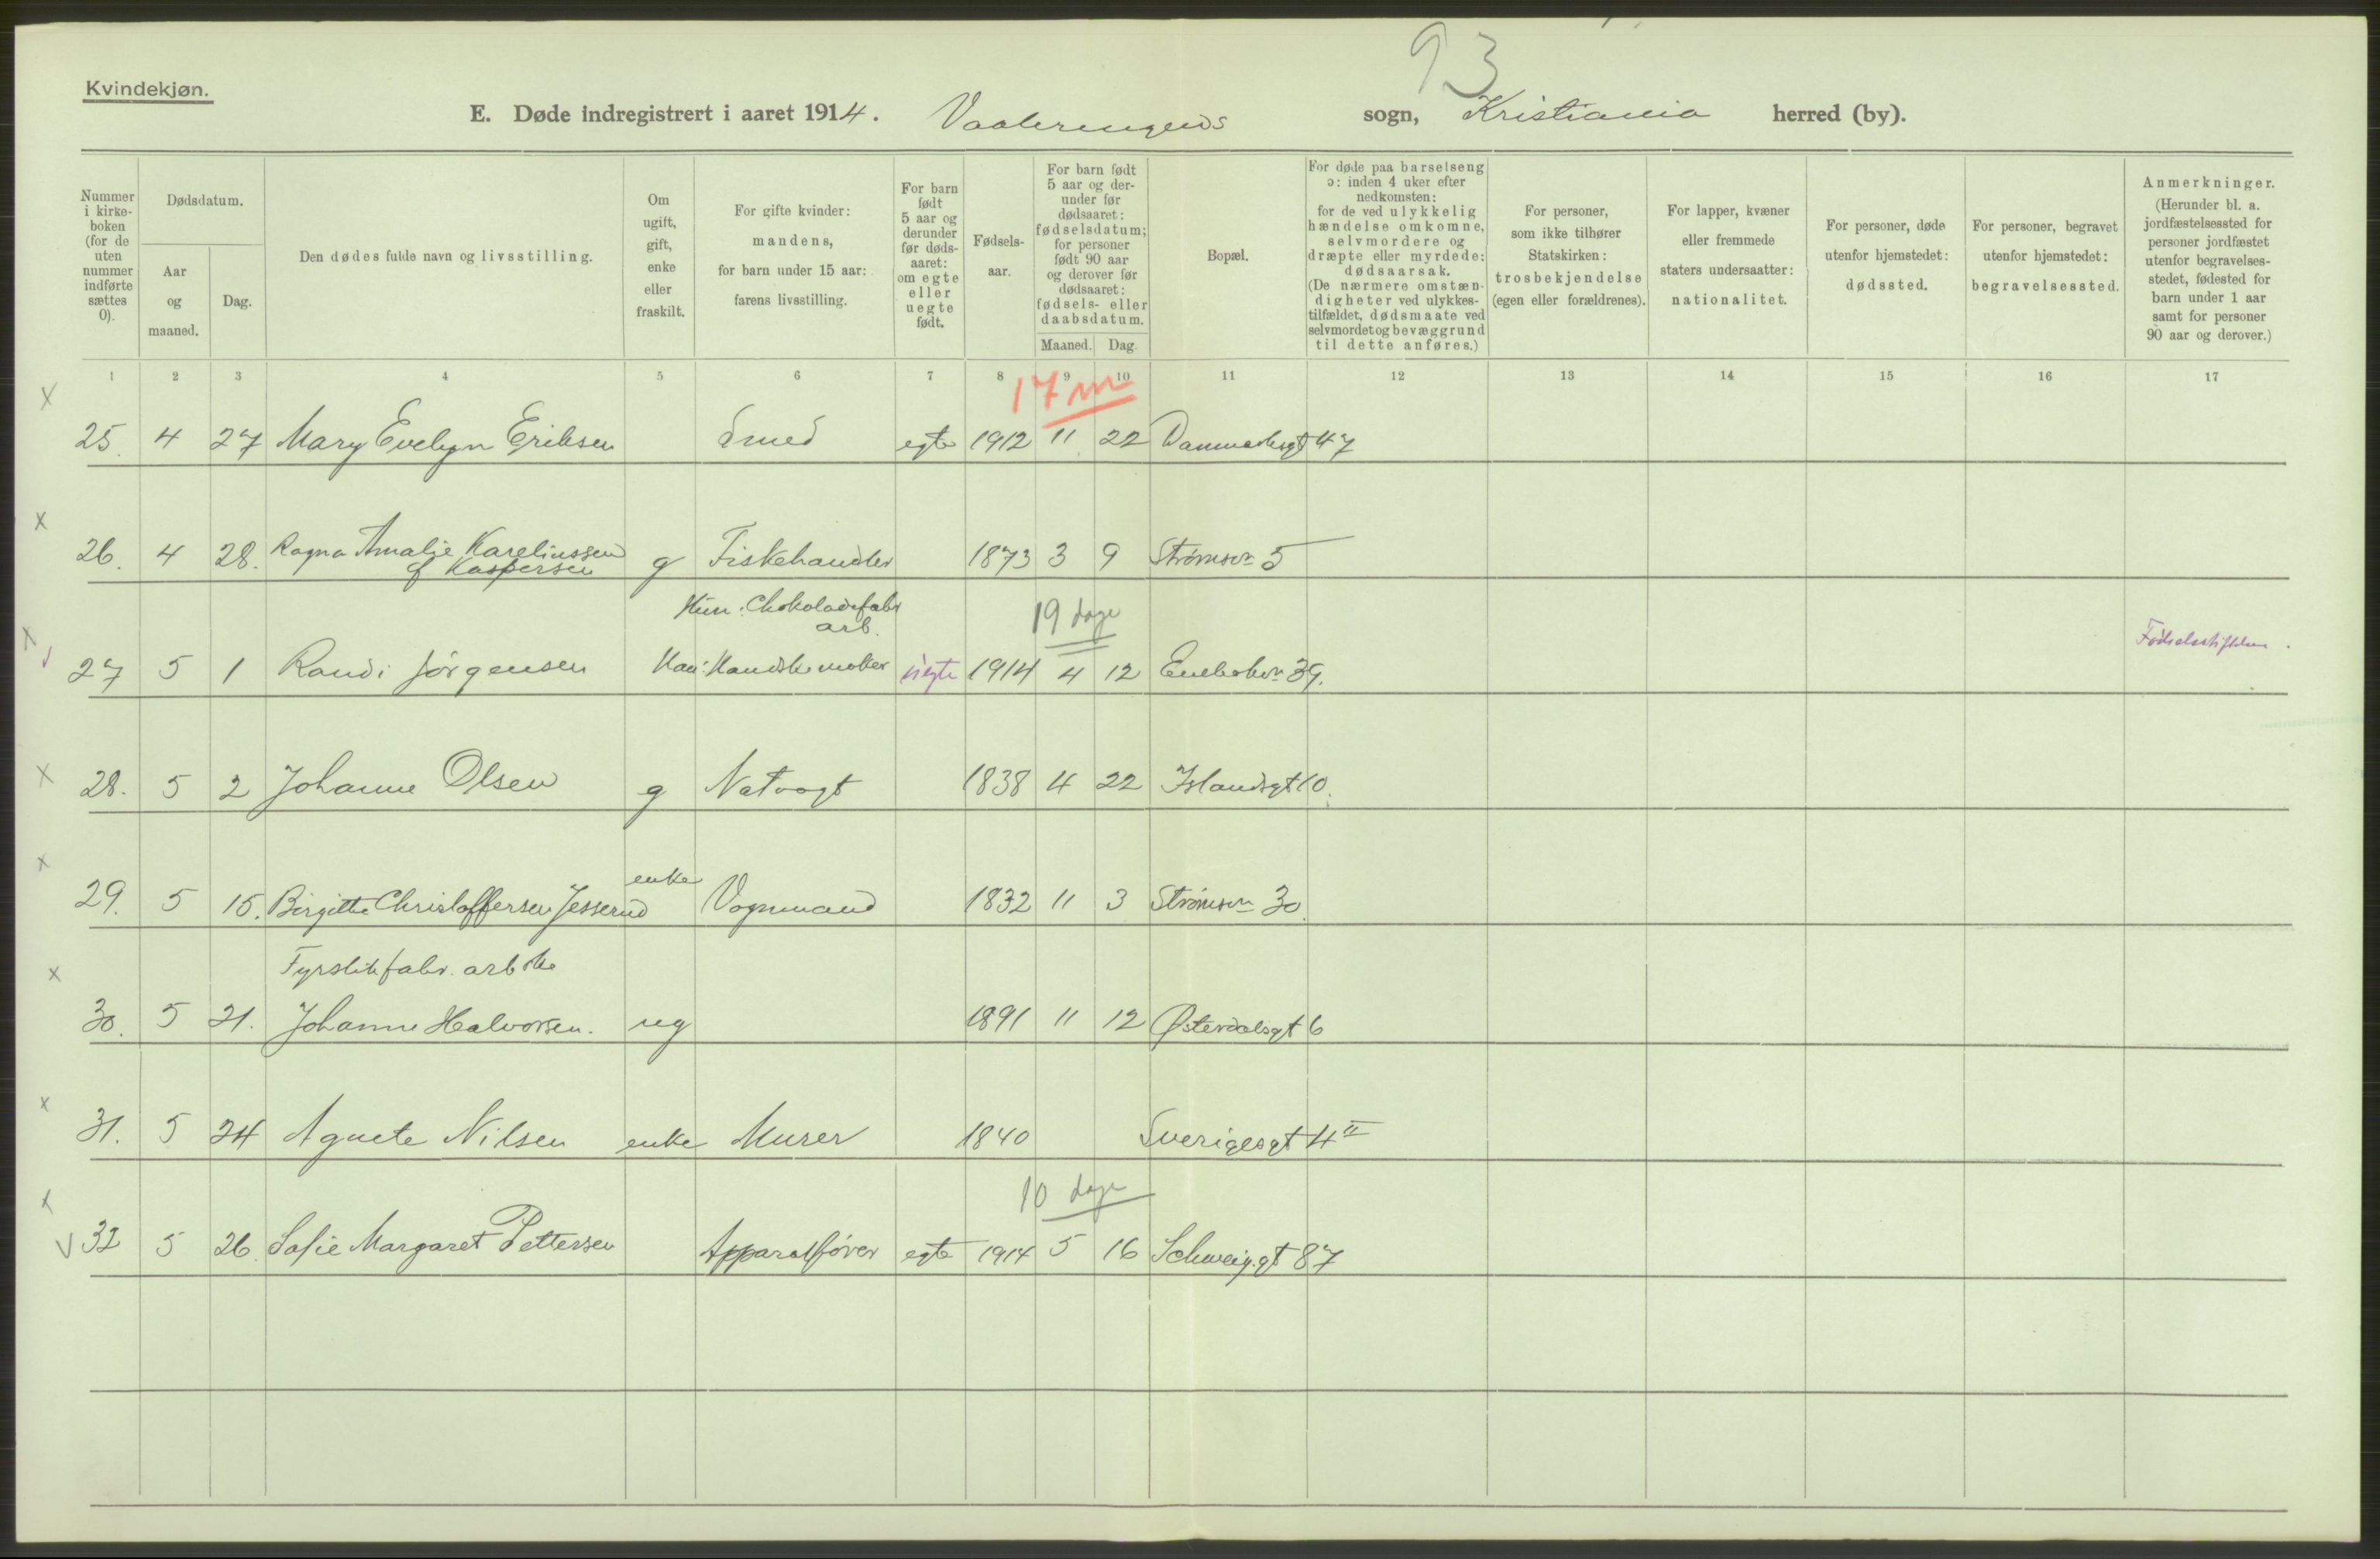 93
Kvindekjøn.
E. Døde indregistrert i aaret 1914. Vaalerengens sogn, Kristiania herred (by).
Nummer i kirke- boken (for de uten nummer indførte sættes 0).
Dødsdatum.
Aar og maaned.
Dag.
Den dødes fulde navn og livsstilling.
Om ugift, gift, enke eller fraskilt.
For gifte kvinder: mandens, for barn under 15 aar: farens livsstilling.
For barn født 5 aar og derunder før døds- aaret: om egte eller uegte født.
Fødsels- aar.
For barn født 5 aar og der- under før dødsaaret: fødselsdatum; for personer født 90 aar og derover før dødsaaret: fødsels- eller daabsdatum.
Maaned. Dag.
Bopæl.
For døde paa barselseng ɔ: inden 4 uker efter nedkomsten: for de ved ulykkelig hændelse omkomne, selvmordere og dræpte eller myrdede: dødsaarsak. (De nærmere omstæn- digheter ved ulykkes- tilfældet, dødsmaate ved selvmordet og bevæggrund til dette anføres.)
For personer, som ikke tilhører Statskirken: trosbekjendelse (egen eller forældrenes).
For lapper, kvæner eller fremmede staters undersaatter: nationalitet.
For personer, døde utenfor hjemstedet: dødssted.
For personer, begravet utenfor hjemstedet: begravelsessted.
Anmerkninger. (Herunder bl. a. jordfæstelsessted for personer jordfæstet utenfor begravelses- stedet, fødested for barn under 1 aar samt for personer 90 aar og derover.)
1 2 3 4 5 6 7 8 9 10 11 12 13 14 15 16 17
x 17 m
25. 4 27 Mary Evelyn Eriksen Smed egte 1912 11 22 Danmarksgt 47
x
26. 4 28. Ragna Amalie Kareliussen g Fiskehandler 1873 3 9 Strømsvn 5
f Kaspersen
x Hun: Chokoladefabr arb. 19 dage Fødselsstiftelsen.
v 27 5 1 Randi Jørgensen Han: Handskemaker uegte 1914 4 12 Enebakvn 39.
x 28. 5 2 Johanne Olsen g Natvagt 1838 4 22 Islandsgt 10.
x enke
29. 5 15. Birgitte Christoffersen Jesserud Vognmand 1832 11 3 Strømsvn 30.
x Fyrstikfabr. arbske
30. 5 21. Johanne Halvorsen. ug 1891 11 12 Østerdalsgt 6
x
31. 5 24 Agnete Nilsen enke Murer 1840 Sverigesgt 4 II
x 10 dage
v 32 5 26. Sofie Margaret Pettersen Apparatfører egte 1914 5 16 Schweig.gt 87